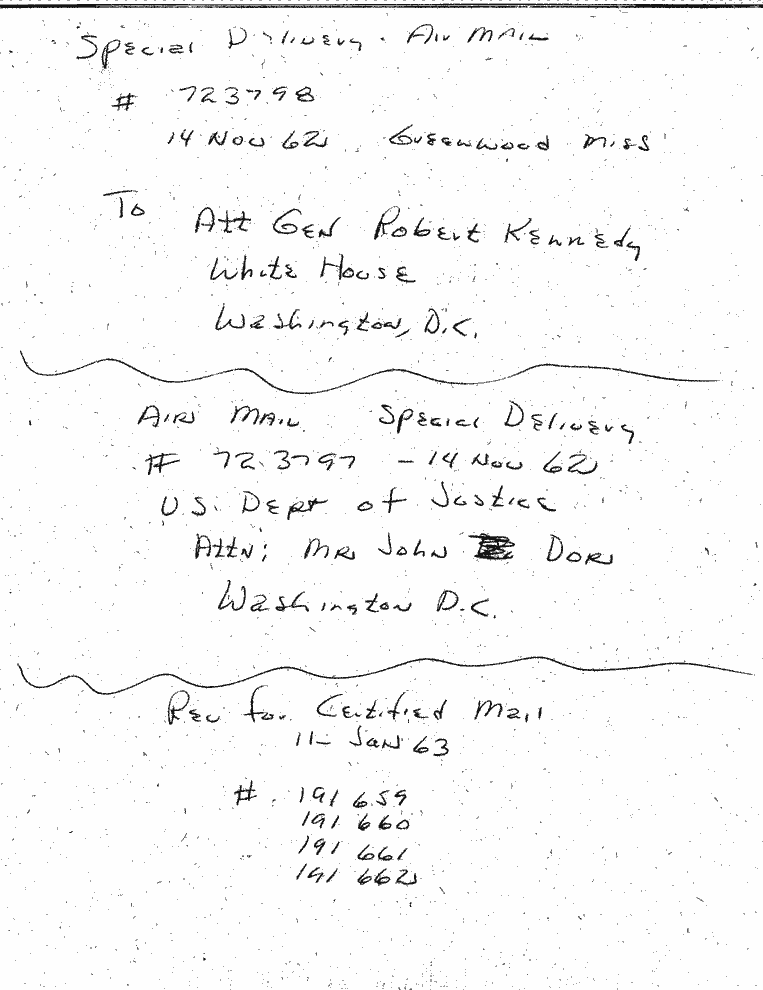 Special Delivery - Air Mail
# 723798
14 Nov 62 Greenwood Miss
To Att Gen Robert Kennedy
White House
Washington, D.C.
Air Mail Special Delivery
# 723797 - 14 Nov 62
U.S. Dept of Justice
Attn: Mr John Dor
Washington D.C.
Rec for Certified Mail
11 - Jan 63
# 191 659
191 660
191 661
191 662